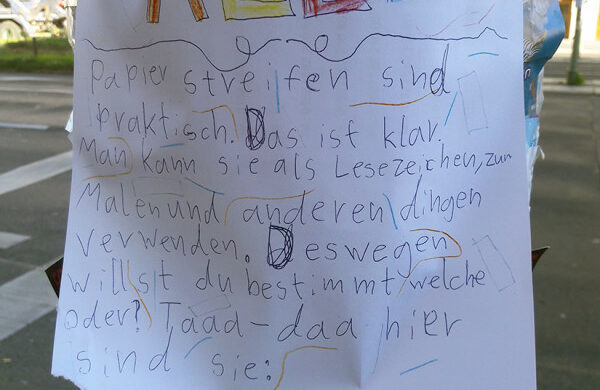 Papierstreifen sind
praktisch. Das ist klar.
Man kann sie als Lesezeichen, zum
Malen und anderen dingen
verwenden. Deswegen
willst du bestimmt welche
oder? Taad-daa hier
sind sie: